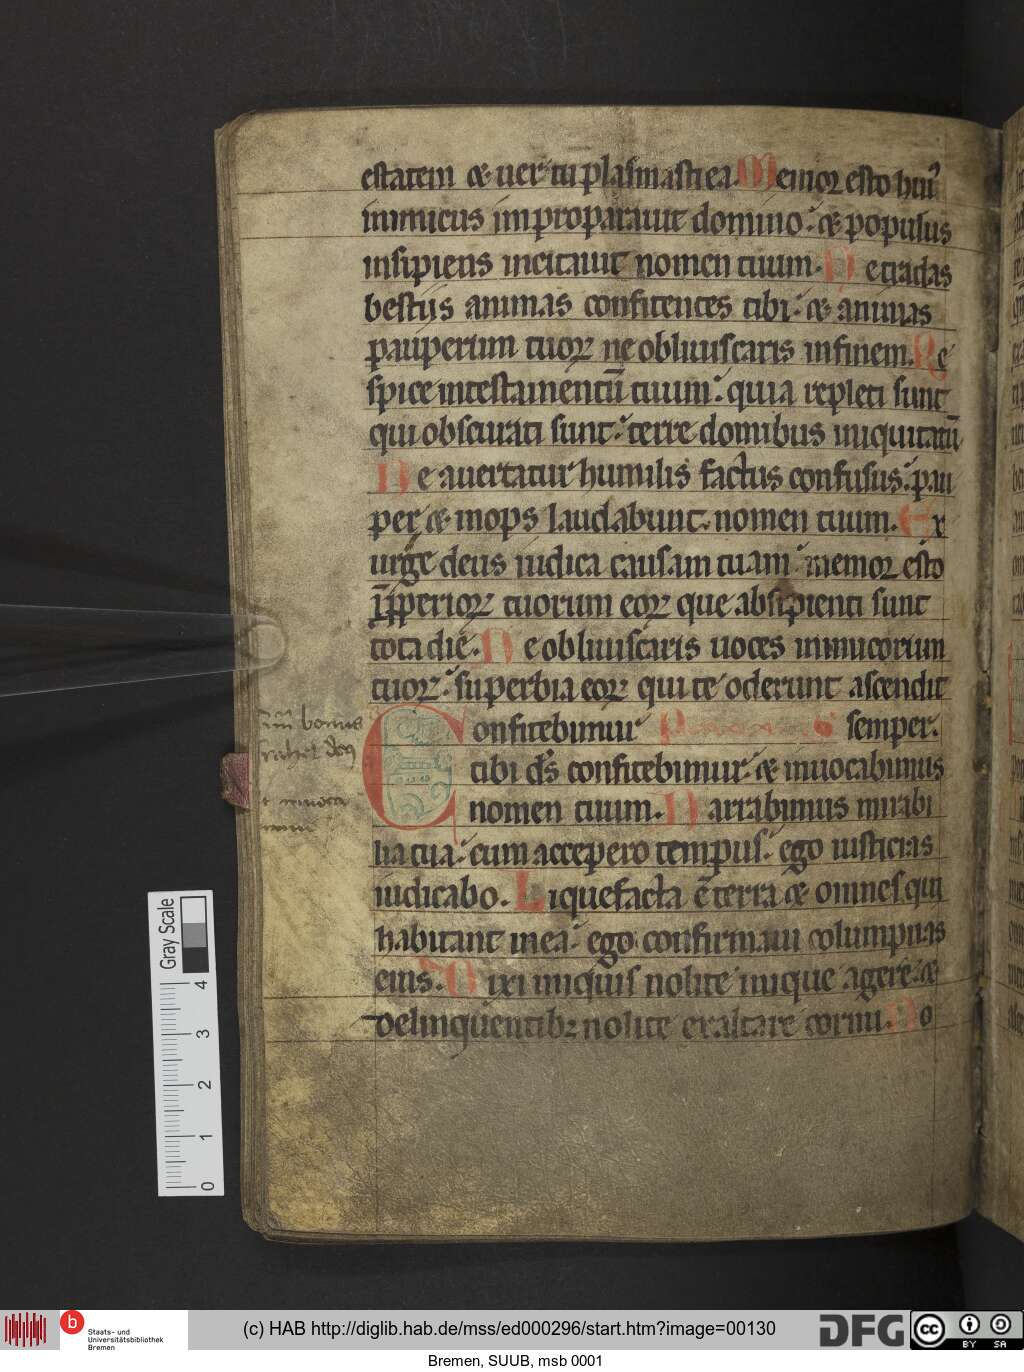 estatem & uer tu plasmasti ea. Memor esto hui᷒
inimicus improperauit domino: & populus
insipiens incitauit nomen tuum. Ne tradas
bestiis animas confitentes tibi: & animas
pauperum tuoꝝ ne obliuiscaris in finem. Re
spice in testamentū tuum: quia repleti sunt
qui obscurati sunt: terre domibus iniquitatū
Ne auertatur humilis factus confusus: pau
per & inops laudabunt nomen tuum. Ex
urge deus iudica causam tuam: memor esto
īproperioꝝ tuorum eoꝝ que ab insipienti sunt
tota die. Ne obliuiscaris uoces inimicorum
tuoꝝ: superbia eoꝝ qui te oderunt ascendit
Confitebimur semper.
tibi ds̄ confitebimur: & inuocabimus
nomen tuum. Narrabimus mirabi
lia tua: cum accepero tempus: ego iusticias
iudicabo. Liquefacta ē terra & omnes qui
habitant in ea: ego confirmaui columpnas
eius. Dixi iniquis nolite inique agere: &
delinquentibꝫ nolite exaltare cornu. No
bonus
Gray Scale
4
3
2
1
0
b
Staats- und
Universitätsbibliothek
Bremen
(c) HAB http://diglib.hab.de/mss/ed000296/start.htm?image=00130
DFG
cc
BY SA
Bremen, SUUB, msb 0001